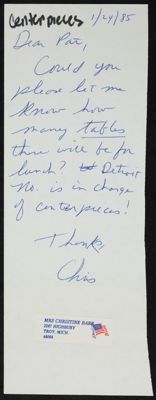 Centerpieces 1/24/85
Dear Pat,
Could you
please let me
know how
many tables
there will be for
lunch? Detroit
No. is in charge
of centerpieces!
Thanks,
Chris
MRS CHRISTINE
2267 HIGHBURY
TROY, MICH.